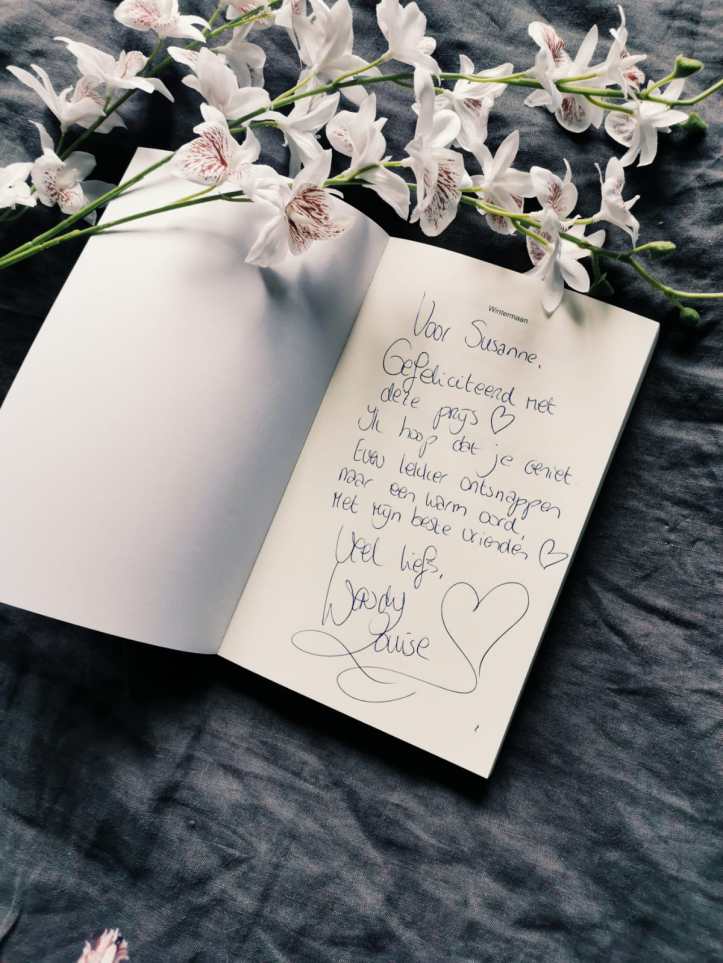 Wintermaan
Voor Susanne,
Gefeliciteerd met
deze prijs ♡
Ik hoop dat je geniet.
Even lekker ontsnappen
naar een warm oord,
Met mijn beste vrienden ♡
Veel liefs,
Wendy
Louise
1